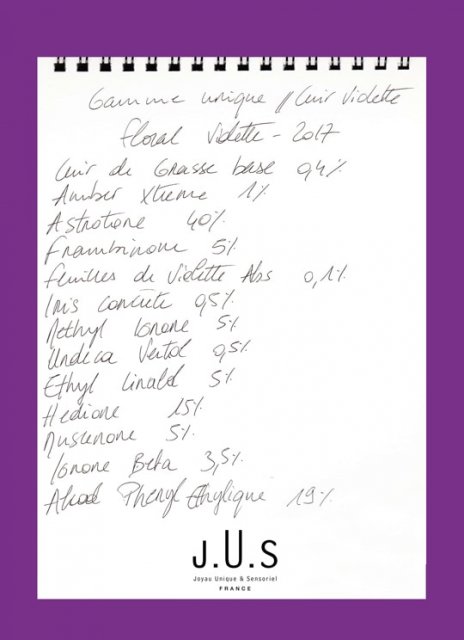 Gamme unique // Cuir Violette
Floral Violette - 2017
Cuir de Grasse base 0,4%
Amber Xtreme 1%
Astrotone 40%
Frambinone 5%
Feuilles de Violette Abs 0,1%
Iris concrète 0,5%
Methyl Ionone 5%
Undeca Vertol 0,5%
Ethyl Linalol 5%
Hedione 15%
Muscenone 5%
Ionone Beta 3,5%
Alcool Phenyl Ethylique 19%
J.U.S
Joyau Unique & Sensoriel
FRANCE